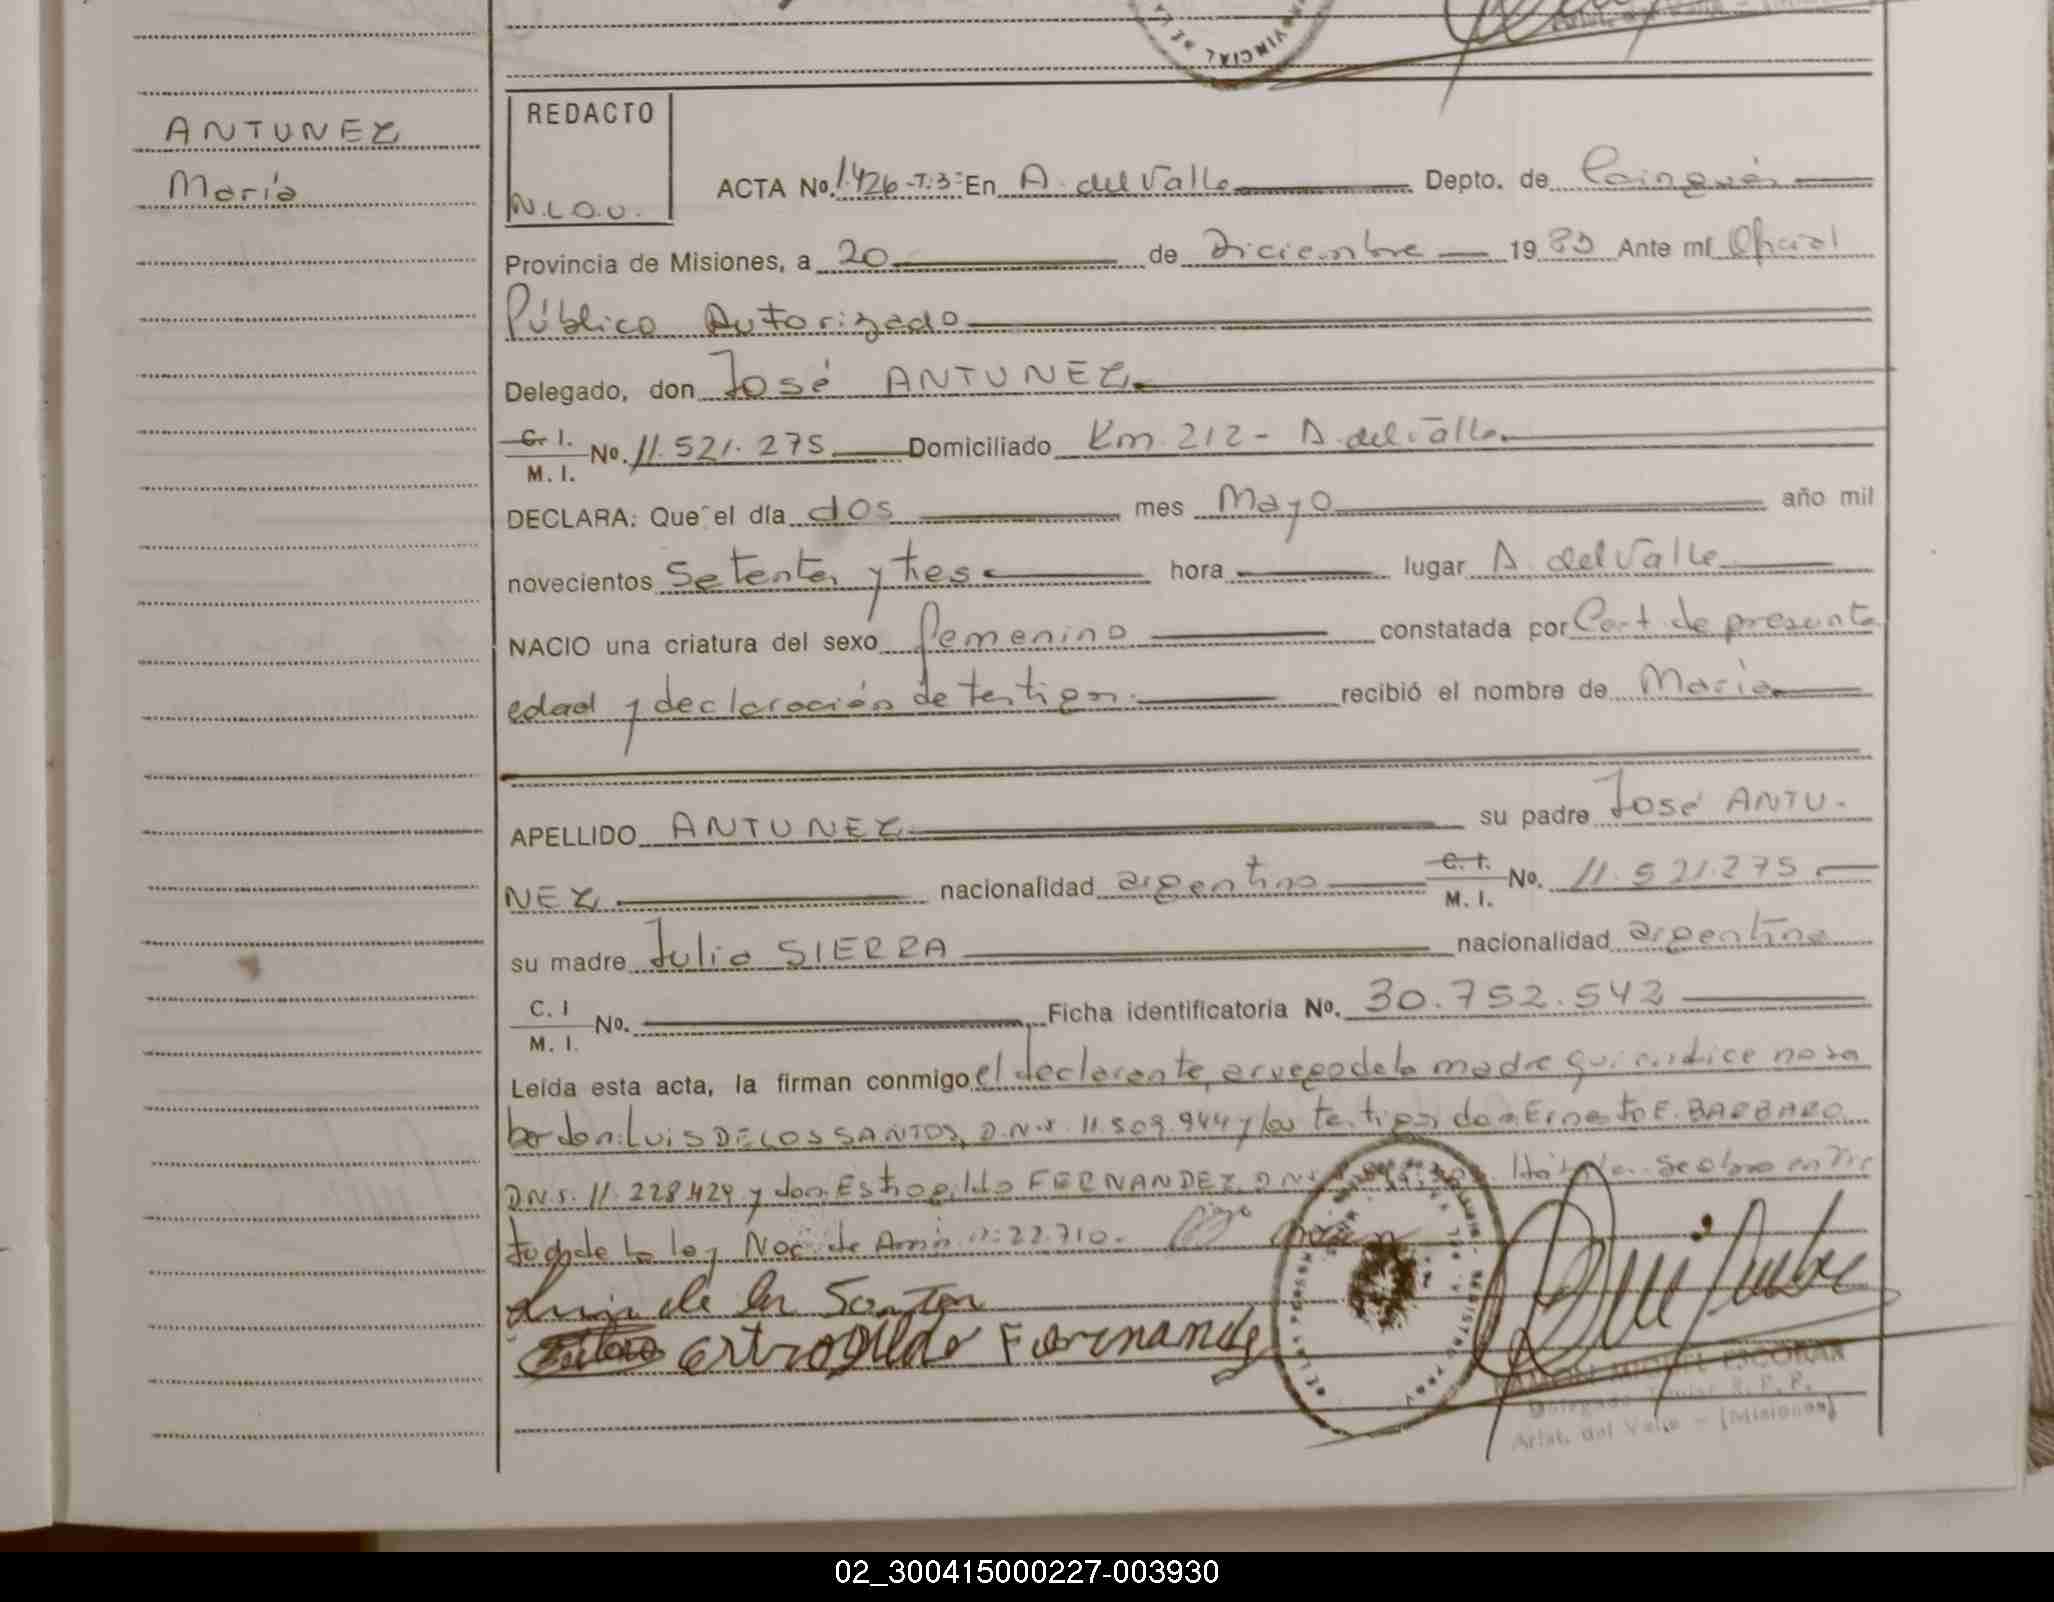 ANTUNEZ
María
REDACTO
N.L.O.U.
ACTA No. 1.426-T.3- En A. del Valle Depto. de Cainguás
Provincia de Misiones, a 20 de Diciembre 19 Ante mí Oficial
Público Autorizado
Delegado, don José ANTUNEZ
C. I. M. I. No. 11.521.275 Domiciliado Km. 212 - A. del Valle
DECLARA: Que el día dos mes Mayo año mil
novecientos setenta y tres hora lugar A. del Valle
NACIO una criatura del sexo femenino constatada por Cert. de presunta
edad y declaración de testigos. recibió el nombre de María
APELLIDO ANTUNEZ su padre José ANTU-
NEZ nacionalidad argentino C. I. M. I. No. 11.521.275
su madre Julia SIERRA nacionalidad argentina
C. I M. I. No. Ficha identificatoria No. 30.752.542
Leída esta acta, la firman conmigo el declarante, a ruego de la madre quien dice no sa
ber don: LUIS DE LOS SANTOS, D.N.I. 11.509.944 y los testigos don Ernesto E. BARBARO
D.N.I. 11.228.424 y don Estrogildo FERNANDEZ D.N.I.
la ley Nac. de Amn. n: 22.710.
Luis de los Santos
estrogildo Fernandez
RAMON MIGUEL ESCOBAR
Delegado Titular R. P. P.
Arist. del Valle - (Misiones)
02_300415000227-003930